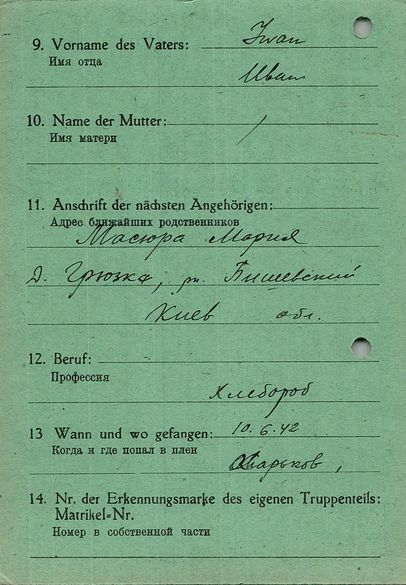 9. Vorname des Vaters: Iwan
Имя отца
Иван
10. Name der Mutter: /
Имя матери
11. Anschrift der nächsten Angehörigen:
Адрес ближайших родственников
Масюра Мария
Д. Грюзка, рн. Бишевский
Киев обл.
12. Beruf:
Профессия
Хлебороб
13 Wann und wo gefangen: 10.6.42
Когда и где попал в плен
Харьков,
14. Nr. der Erkennungsmarke des eigenen Truppenteils:
Matrikel-Nr.
Номер в собственной части